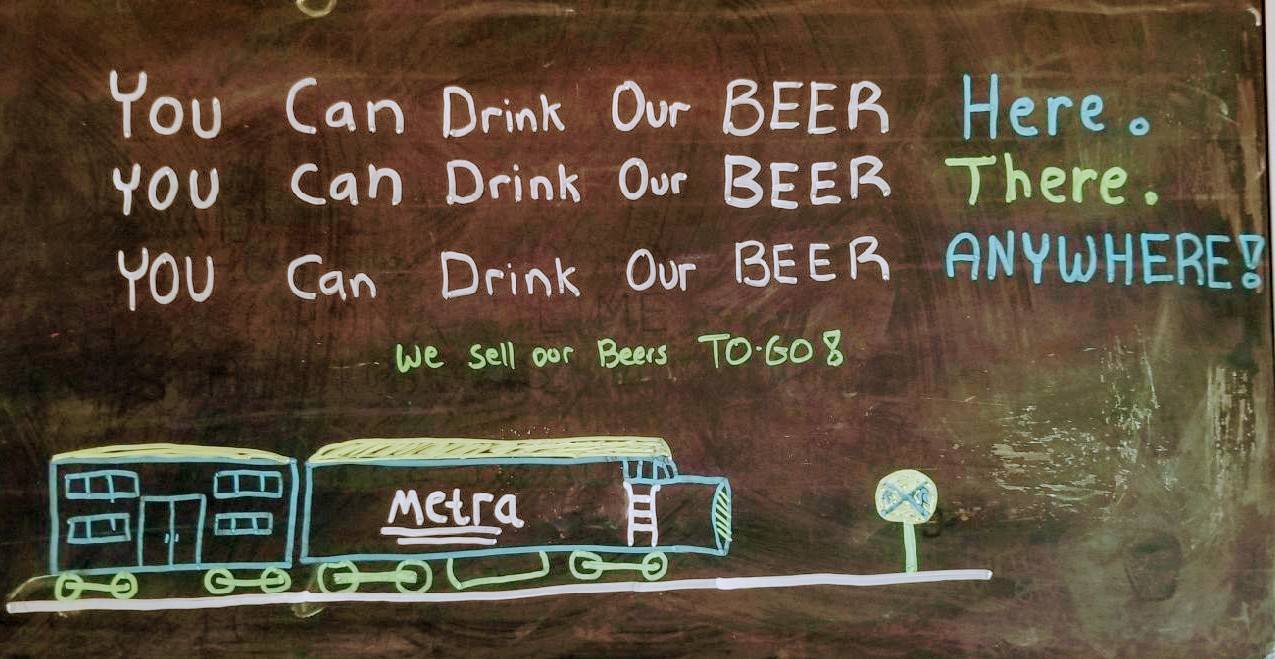 You Can Drink Our BEER Here.
YOU Can Drink Our BEER There.
YOU Can Drink Our BEER ANYWHERE!
We sell our Beers TO-GO!
Metra